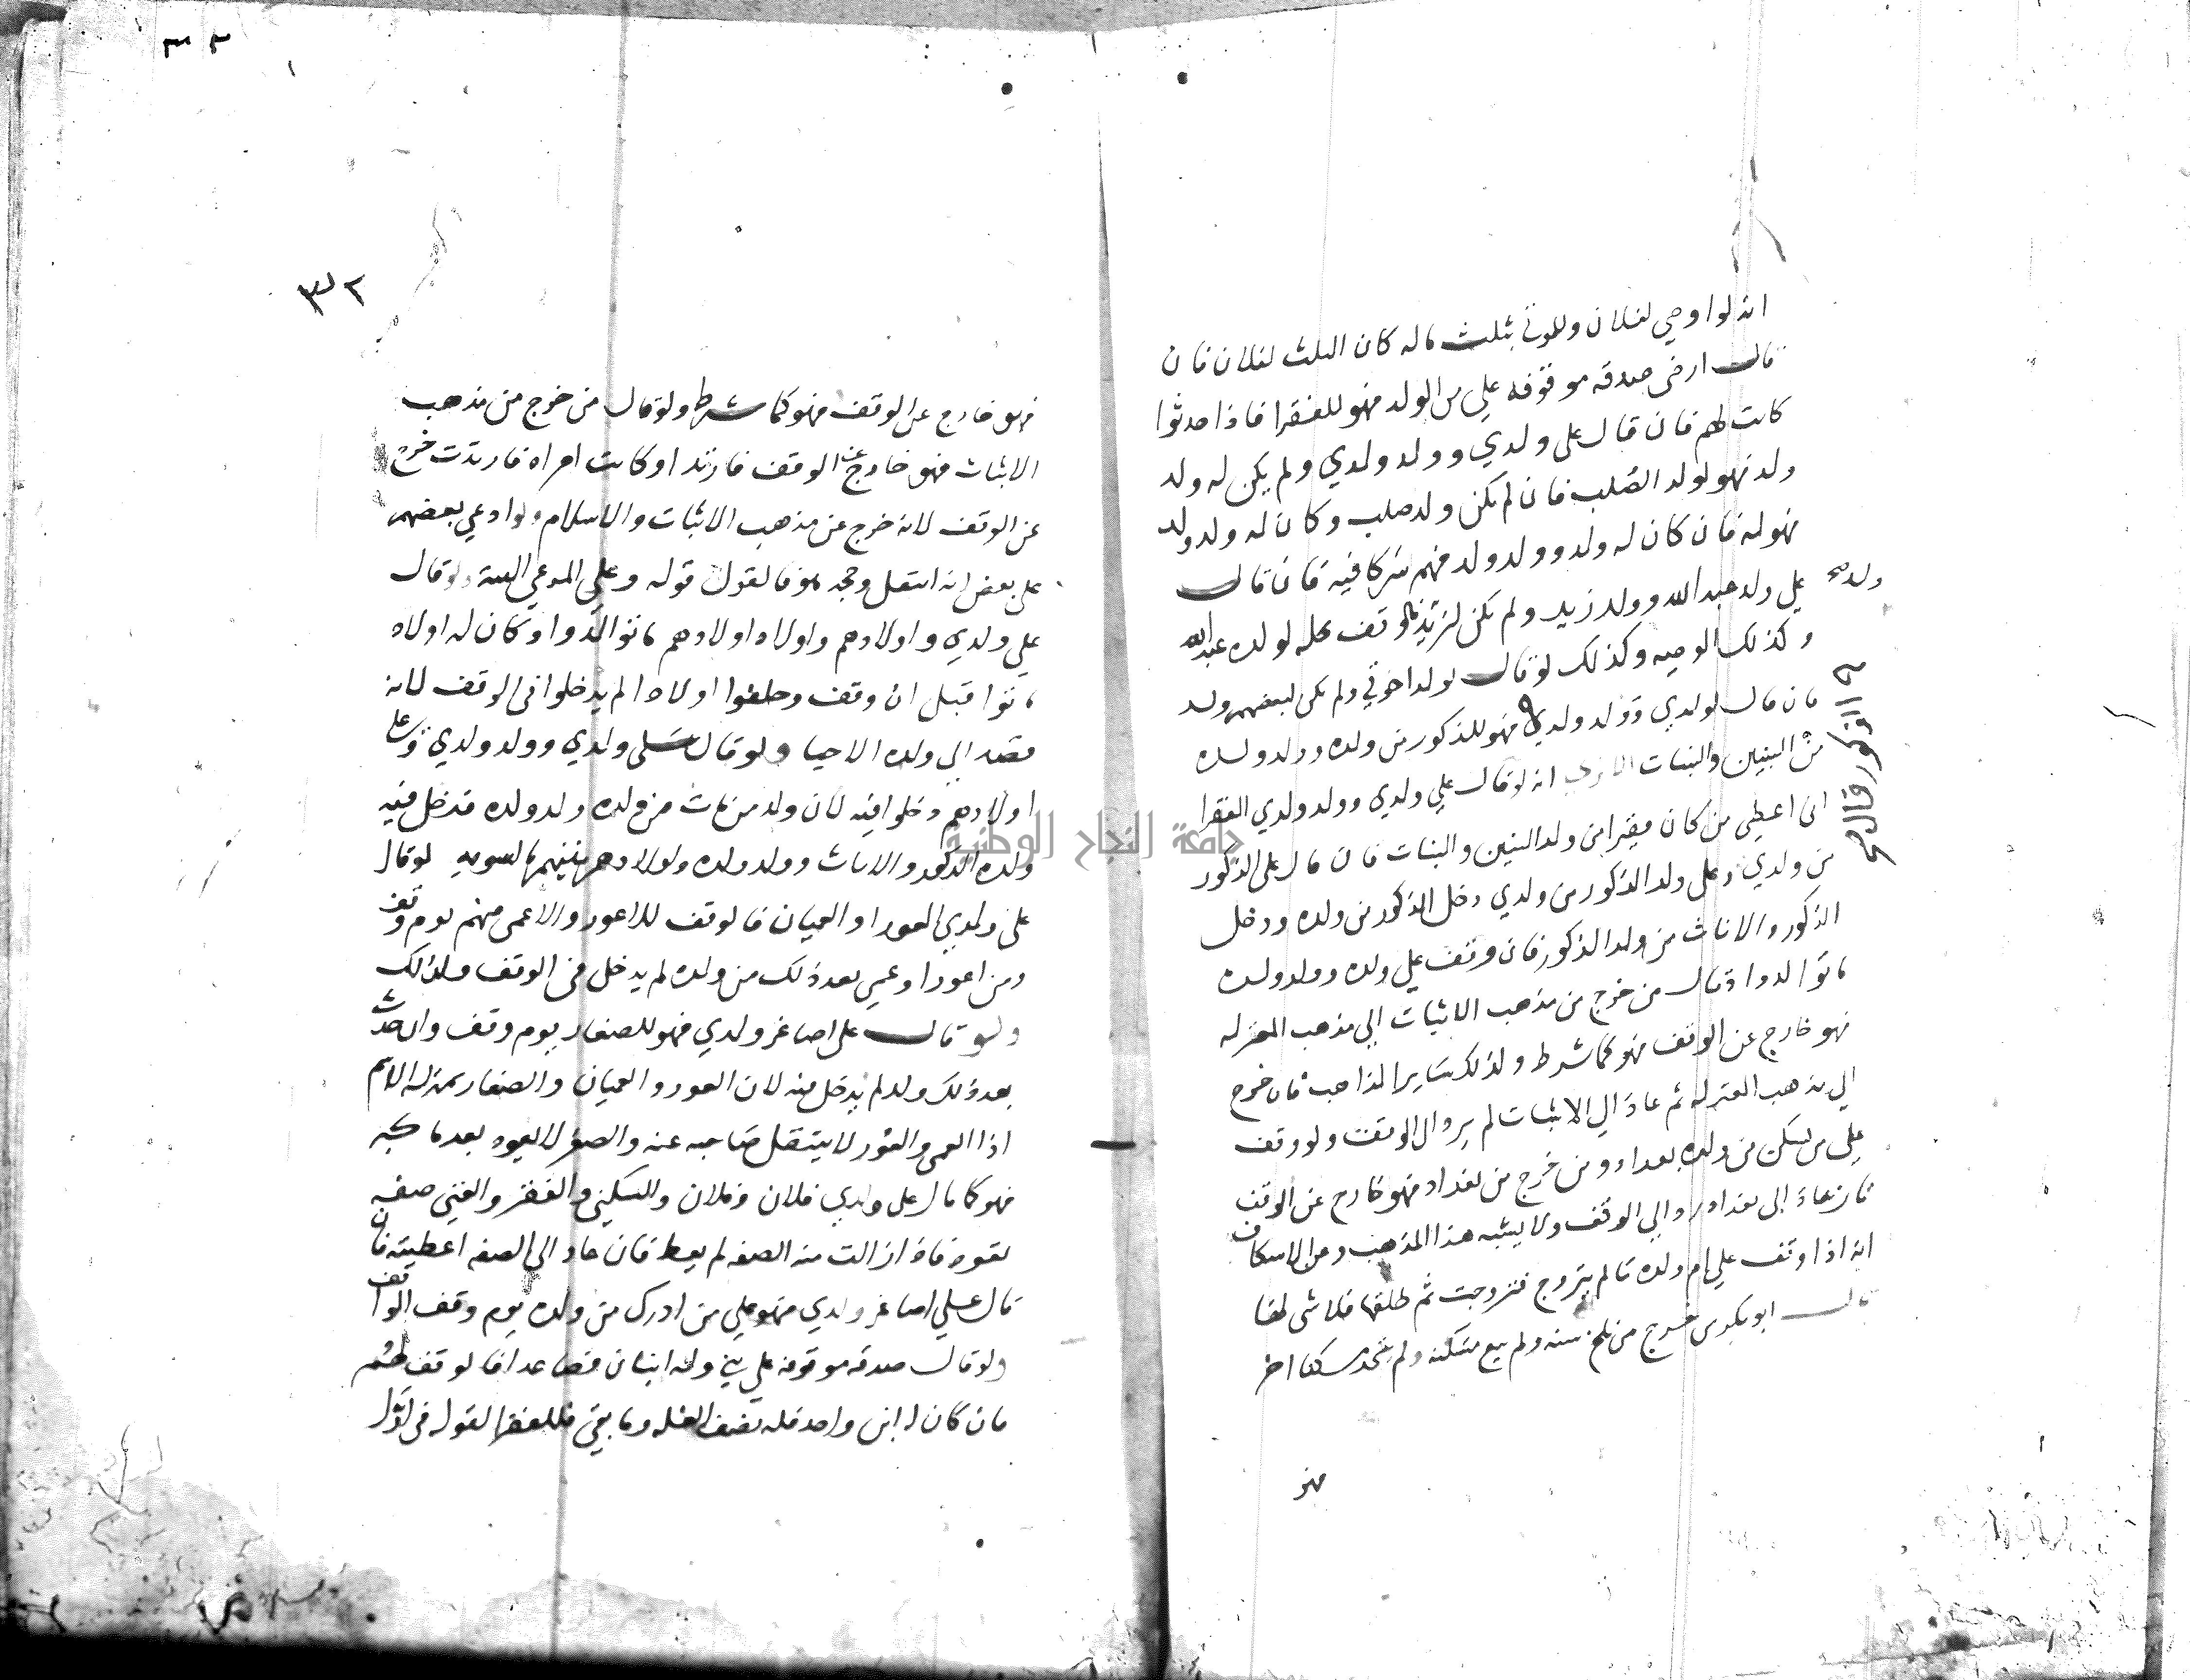 انه لو اوصي لفلان وللموتي بثلث ماله كان الثلث لفلان فان
قال ارضي صدقه موقوفه علي من الولد فهو للفقرا فاذا حدثوا
كانت لهم فان قال على ولدي وولد ولدي ولم يكن له ولد
ولد فهو لولد الصلب فان لم يكن ولد صلب وكان له ولد ولد
فهو له فان كان له ولد وولد ولد فهم شركا فيه فان قال
علي ولد عبد الله وولد زيد ولم يكن لزيد فالوقف كله لولد عبد الله
ولد صح
وكذلك الوصيه وكذلك لو قال لولد اخوتي ولم يكن لبعضهم ولد
فان قال لولدي وولد ولدي فهو للذكور من ولده وولد ولده
الذكور قال صح
من البنين والبنات الا تري انه لو قال علي ولدي وولد ولدي الفقرا
اني اعطي من كان فقيرا من ولد البنين والبنات فان قال على الذكور
من ولدي وعلى ولد الذكور من ولدي دخل الذكور من ولده ودخل
الذكور والاناث من ولد الذكور فان وقف علي ولده وولد ولده
ما توالدوا وقال من خرج من مذهب الاثبات الي مذهب المعتزله
فهو خارج عن الوقف فهو كما شرط ولذلك ساير المذاهب فان خرج
الي مذهب المعتزله ثم عاد الي الاثبات لم يرد الي الوقف ولو وقف
علي من سكن من ولده بغداد ومن خرج من بغداد فهو خارج عن الوقف
فان عاد الى بغداد رد الي الوقف ولا يشبه هذا المذهب وعن الاسكاف
انه اذا وقف علي ام ولده ما لم يتزوج فتزوجت ثم طلقها فلا شى لها
قال ابو بكر من خرج من بلخ سنه ولم يبع مسكنه ولم يتخذ مسكنا اخر
فهو
٣٢
٣٢
فهو خارج عن الوقف فهو كما شرط ولو قال من خرج من مذهب
الاثبات فهو خارج عن الوقف فارتد او كانت امراه فارتدت خرج
عن الوقف لانه خرج عن مذهب الاثبات والاسلام ولو ادعي بعضهم
على بعض انه انتقل وجحد هو فالقول قوله وعلي المدعي البينة ولو قال
علي ولدي واولادهم واولاد اولادهم ما توالدوا وكان له اولاد
ماتوا قبل ان وقف وخلفوا اولادا لم يدخلوا في الوقف لانه
قصد الي ولده الاحيا ولو قال على ولدي وولد ولدي وعلى
اولادهم دخلوا فيه لان ولد من مات من ولده ولد ولده فدخل فيه
ولده الذكور والاناث وولد ولده واولادهم بينهم بالسويه لو قال
على ولدي العور او العميان فالوقف للاعور والاعمى منهم يوم وقف
ومن اعور او عمي بعد ذلك من ولده لم يدخل في الوقف ولذلك
ولو قال على اصاغر ولدي فهو للصغار يوم وقف وان حدث
بعد ذلك ولد لم يدخل فيه لان العور والعميان والصغار بمنزله الاسم
اذا العمى والعور لا ينتقل صاحبه عنه والصغر لا يعود بعدما كبر
فهو كما قال على ولدي فلان وفلان والمسكين والفقر والغني صفه
لقوم فاذا زالت منه الصفه لم يعط فان عاد الى الصفه اعطيته فان
قال علي اصاغر ولدي فهو علي من ادرك من ولده يوم وقف الواقف
ولو قال صدقه موقوفه علي بني وله ابنان فصاعدا فالوقف لهم
فان كان له ابن واحد فله نصف الغله وما بقي فللفقرا لقوله في اول
جامعة النجاح الوطنية